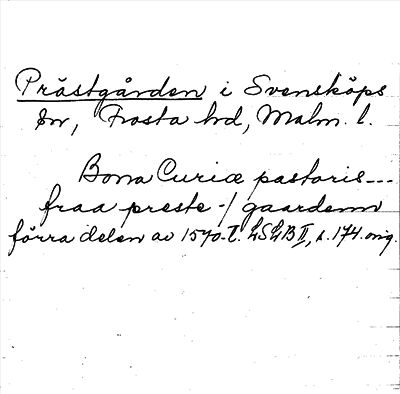 Prästgården i Svensköps
sn, Frosta hd, Malm. l.
Bona Curiæ pastoris---
fraa preste-/gaardenn
förra delen av 1570-t. LSLB II, s. 174. orig.